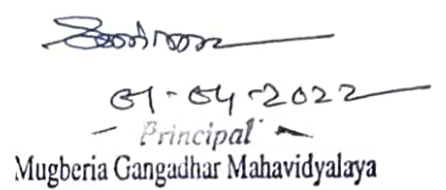 01-04-2022
Principal
Mugberia Gangadhar Mahavidyalaya